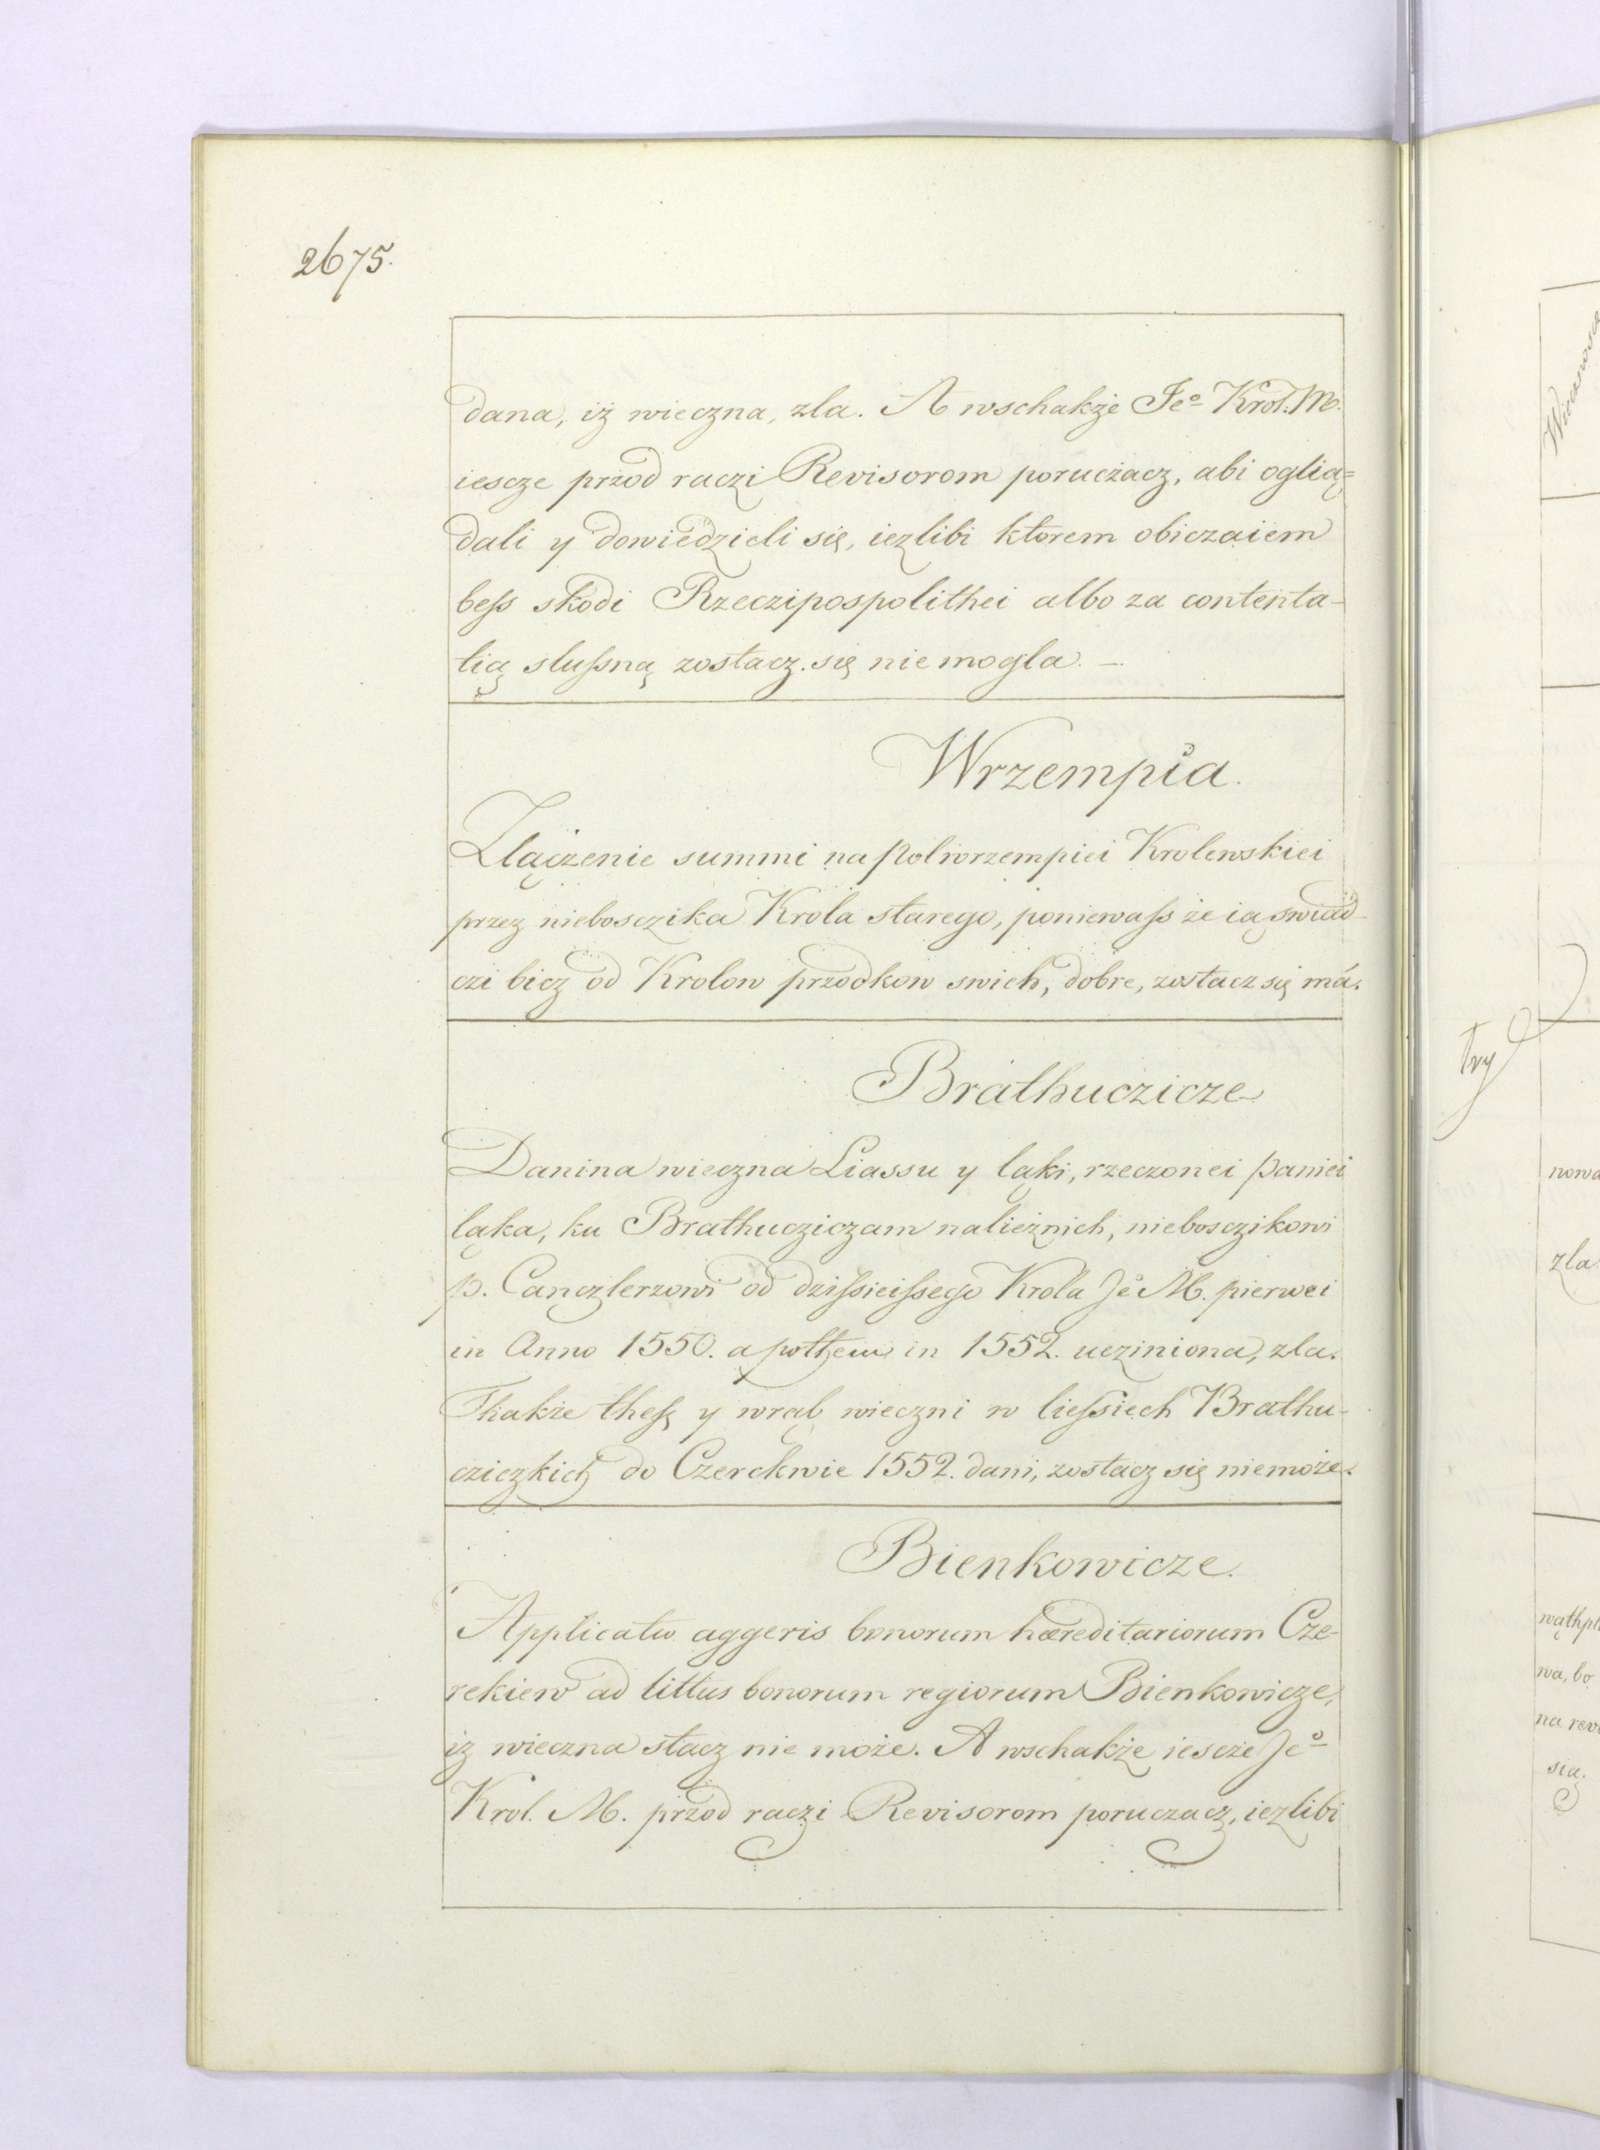 2675.
dana, iż wieczna, zla. A wschakże Jeº Krol. M.
iescze przod raczi Revisorom poruczacz, abi oglią=
dali y dowiedzieli się, iezlibi ktorem obiczaiem
beſs skodi Rzeczipospolithei albo za contenta-
tią sluſsną zostacz się nie mogla. —
Wrzempia.
Złączenie summi na Polwrzempiei Krolewskiei
przez nieboszczika Krola starego, poniewaſs że ią swiad-
czi bicz od Krolow przodkow swich, dobre, zostacz się má.
Brathuczicze
Danina wieczna Liassu y ląki, rzeczonei paniei
ląka, ku Brathucziczam należnich, nieboszczikowi
p. Canczlerzowi od dziſsieiſsego Krola Jeº M. pierwei
in Anno 1550. a pothem in 1552. ucziniona, zla.
Thakże theſz y wrąb wieczni w lieſsiech Brathu-
cziczkich do Czerekwie 1552. dani, zostacz się niemoże.
Bienkowicze.
Applicatio aggeris bonorum hæreditariorum Cze-
rekiew ad littus bonorum regiorum Bienkowicze,
iz wieczna stacz nie może. A wschakże iescze Jeº
Krol. M. przod raczi Revisorom poruczacz, iezlibi
try
nowa
zla.
wa, bo
na rew
sią.